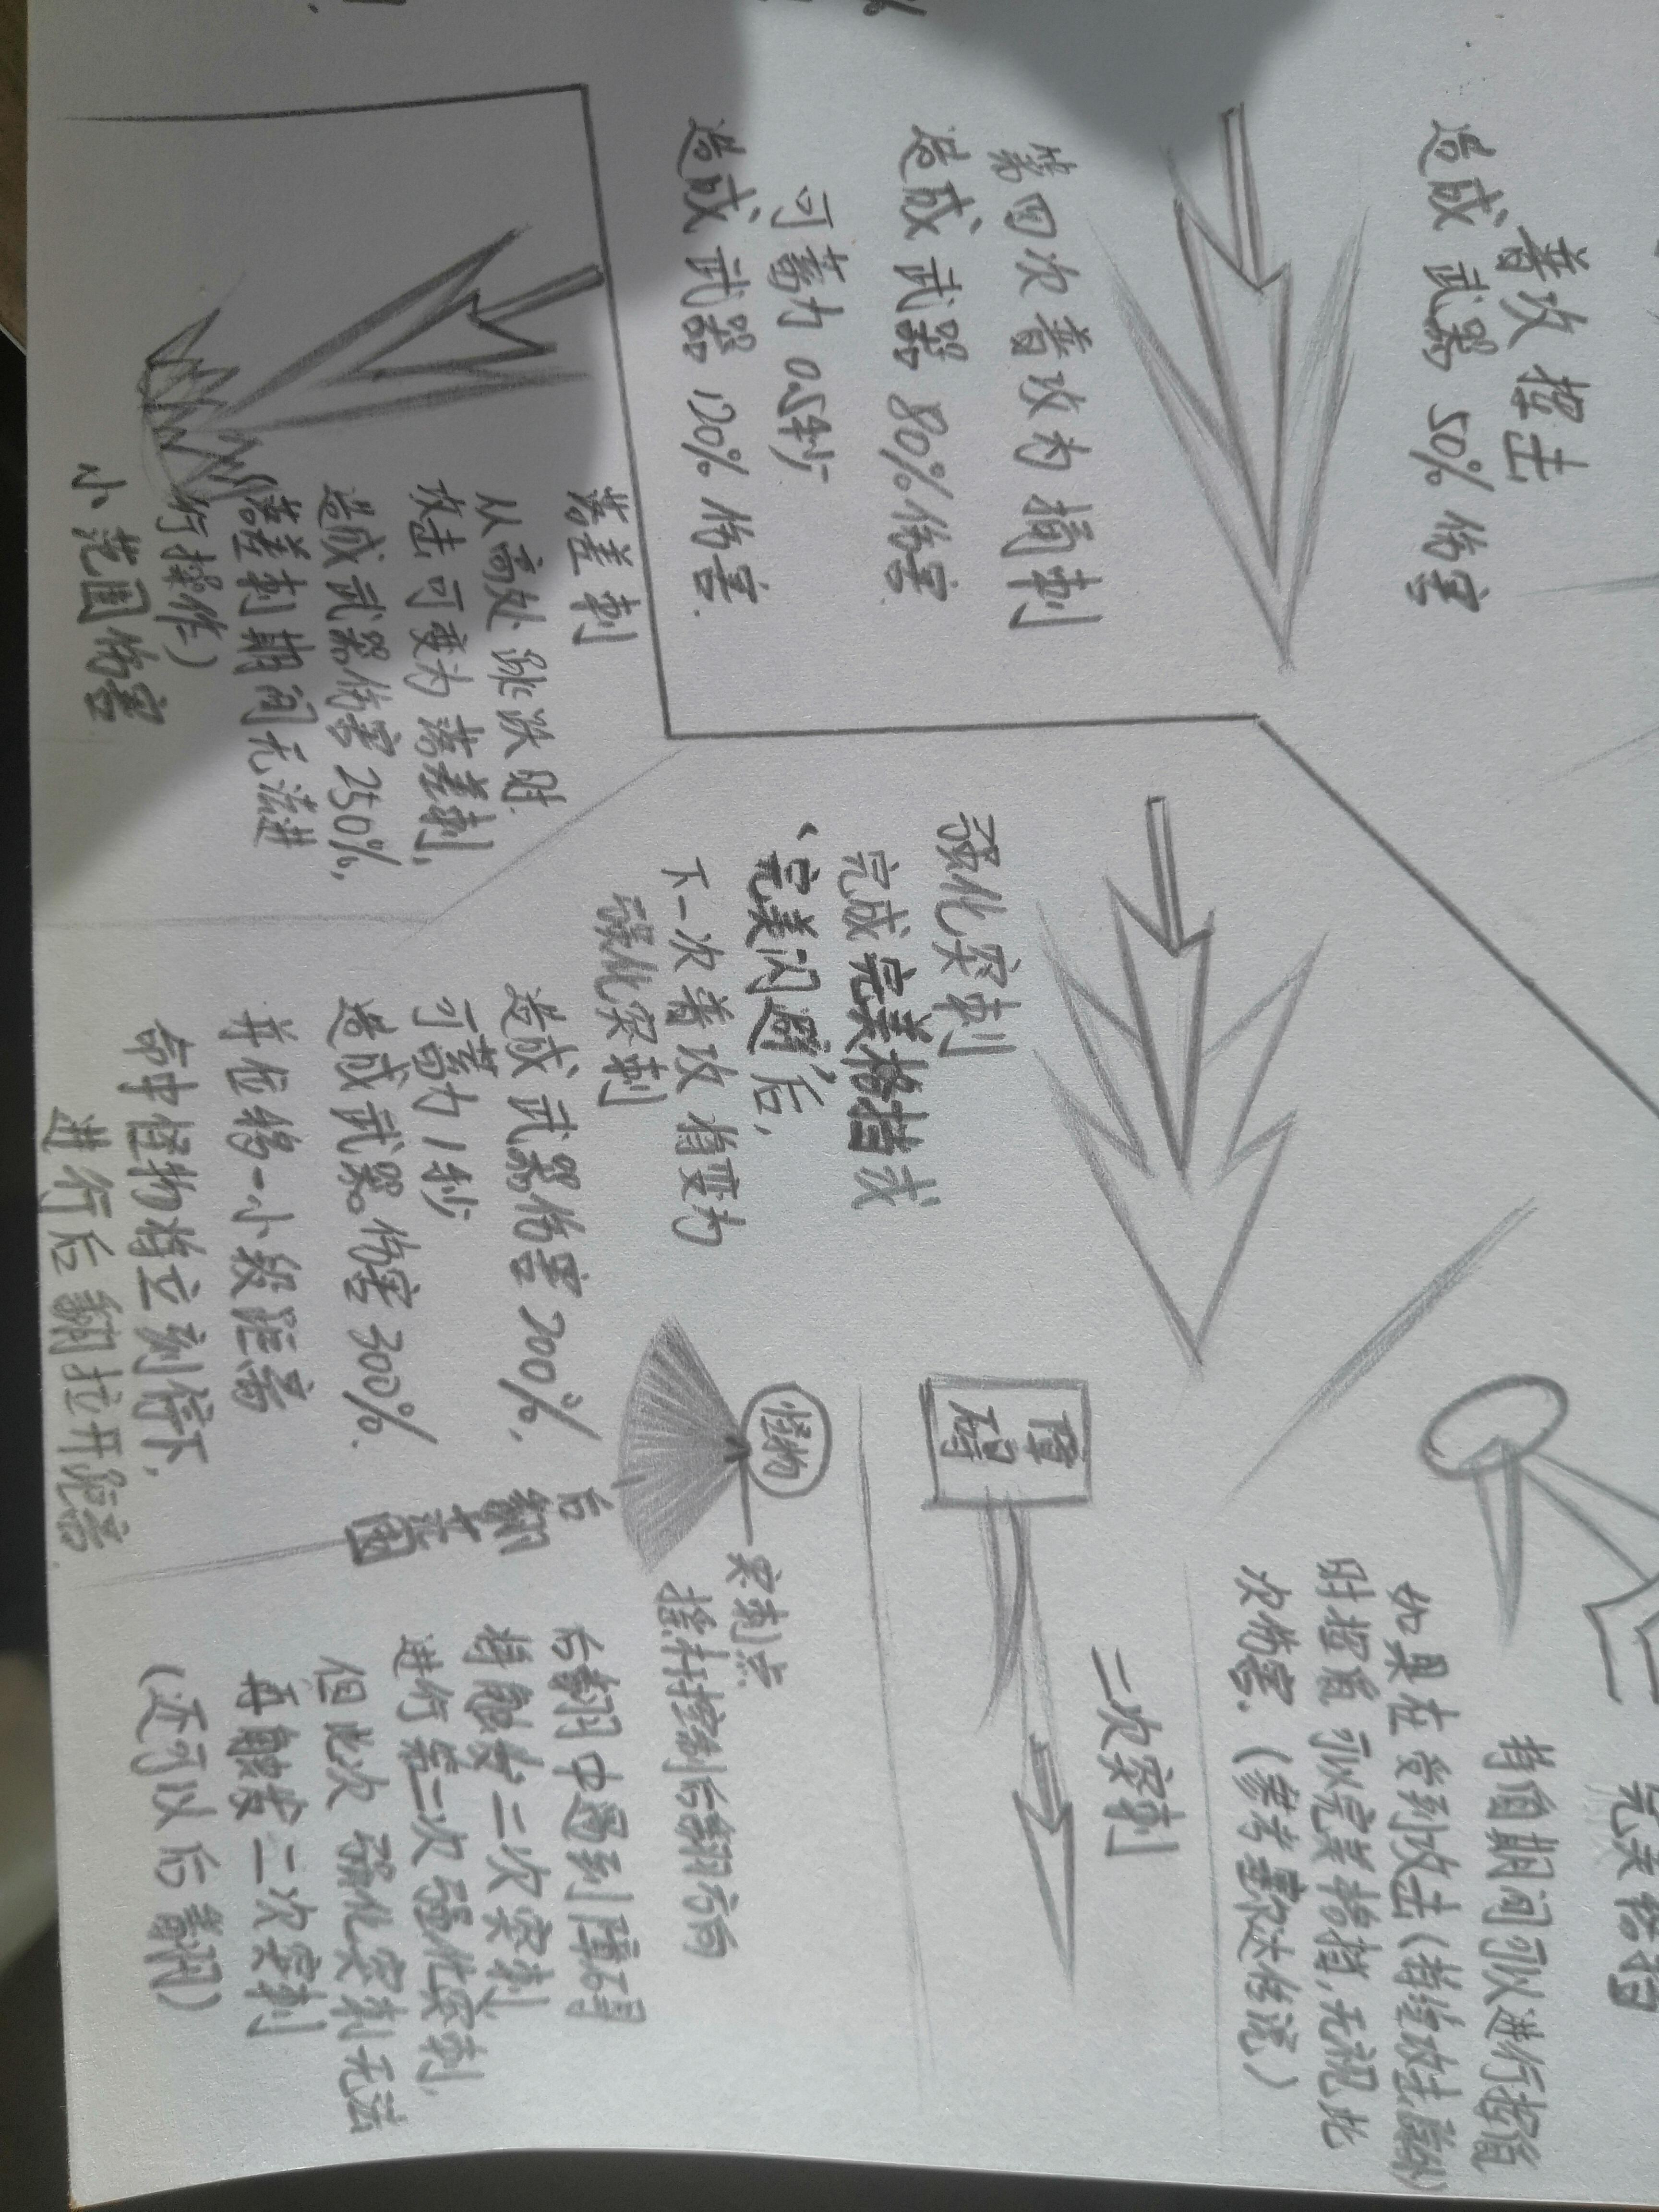 普攻 挥击
造成 武器 50% 伤害
第四次普攻为捅刺
造成 武器 80%伤害.
可蓄力 0.5秒
造成 武器 120% 伤害.
落差刺
从高处跳跃时
攻击可变为 落差刺,
造成武器伤害 250%,
落差刺期间无法进
行操作)
小范围伤害
强化突刺
完成完美格挡或
完美闪避后,
下一次普攻 将变为
强化突刺
造成 武器伤害 200%,
可蓄力1秒
造成武器 伤害 300%.
并位移一小段距离
命中怪物将立刻停下,
进行后翻拉开距离.
障
碍
怪物
突刺点
后
翻
范
围
摇杆控制后翻方向
二次突刺
后翻中遇到障碍
将触发二次突刺
进行第二次强化突刺,
但此次强化突刺无法
再触发二次突刺
(还可以后翻)
完美格挡
持盾期间可以进行
如果在受到攻击
时 可以完美格挡,无视此
次伤害.